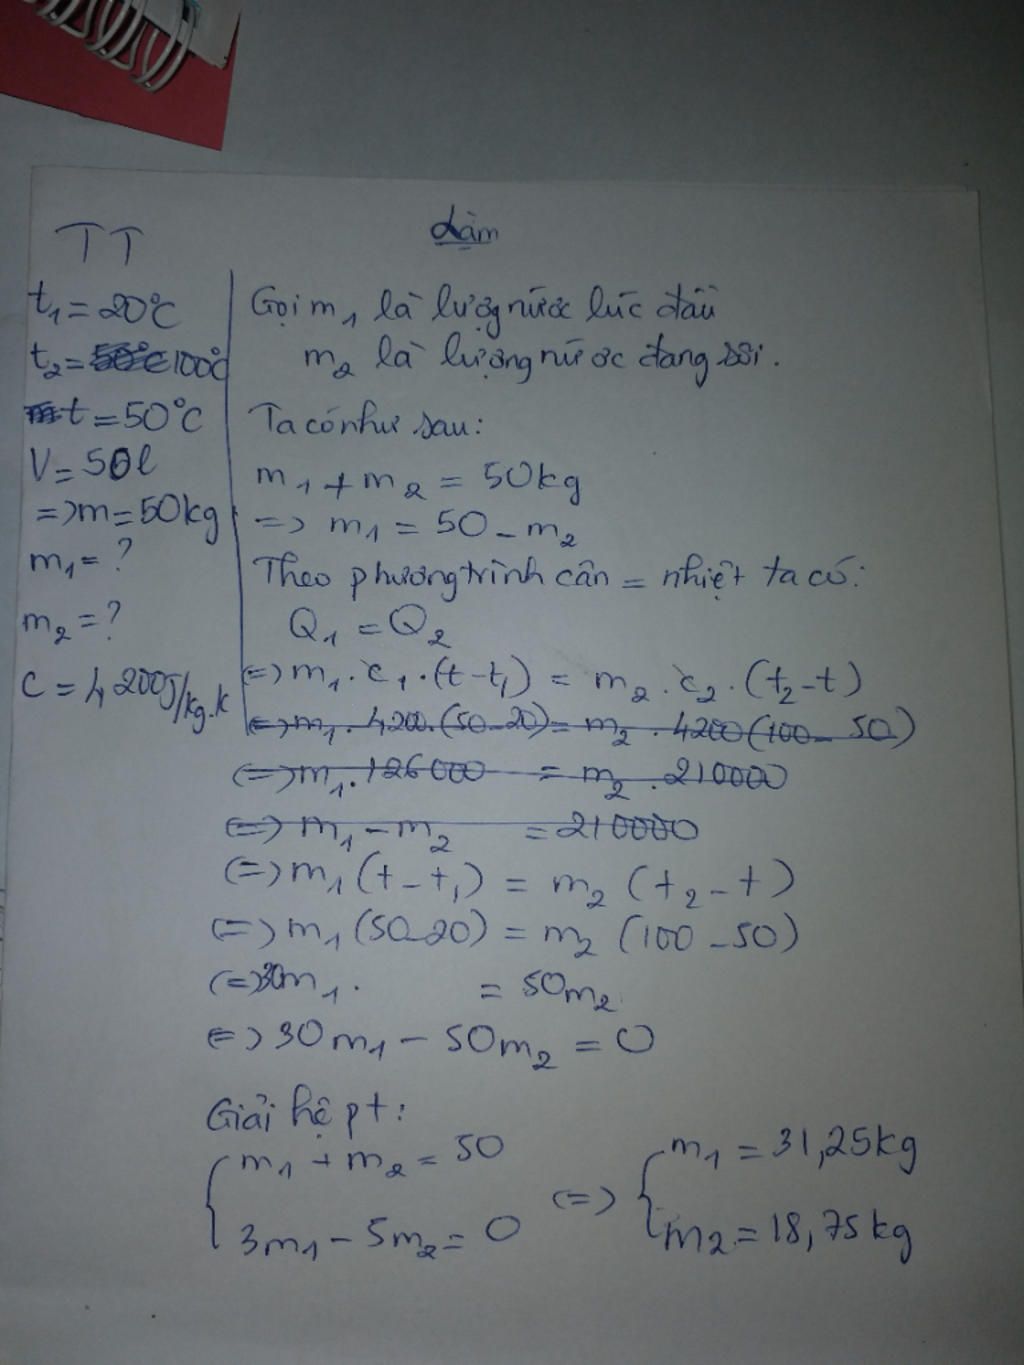 TT
t1 = 20°C
t2 = 50°C 100°C
t = 50°C
V = 50l
=> m = 50kg
m1 = ?
m2 = ?
C = 4200J/kg.k
Làm
Gọi m1 là lượng nước lúc đầu
m2 là lượng nước đang sôi.
Ta có như sau:
m1 + m2 = 50kg
=> m1 = 50 - m2
Theo phương trình cân = nhiệt ta có:
Q1 = Q2
(=) m1.c1.(t-t1) = m2.c2.(t2-t)
(=) m1.4200.(50-20) = m2.4200(100-50)
(=) m1.126000 = m2.210000
(=) m1 - m2 = 210000
(=) m1(t-t1) = m2(t2-t)
(=) m1(50-20) = m2(100-50)
(=) 30m1. = 50m2
(=) 30m1 - 50m2 = 0
Giải hệ pt:
{ m1 + m2 = 50
3m1 - 5m2 = 0
(=) { m1 = 31,25kg
m2 = 18,75kg